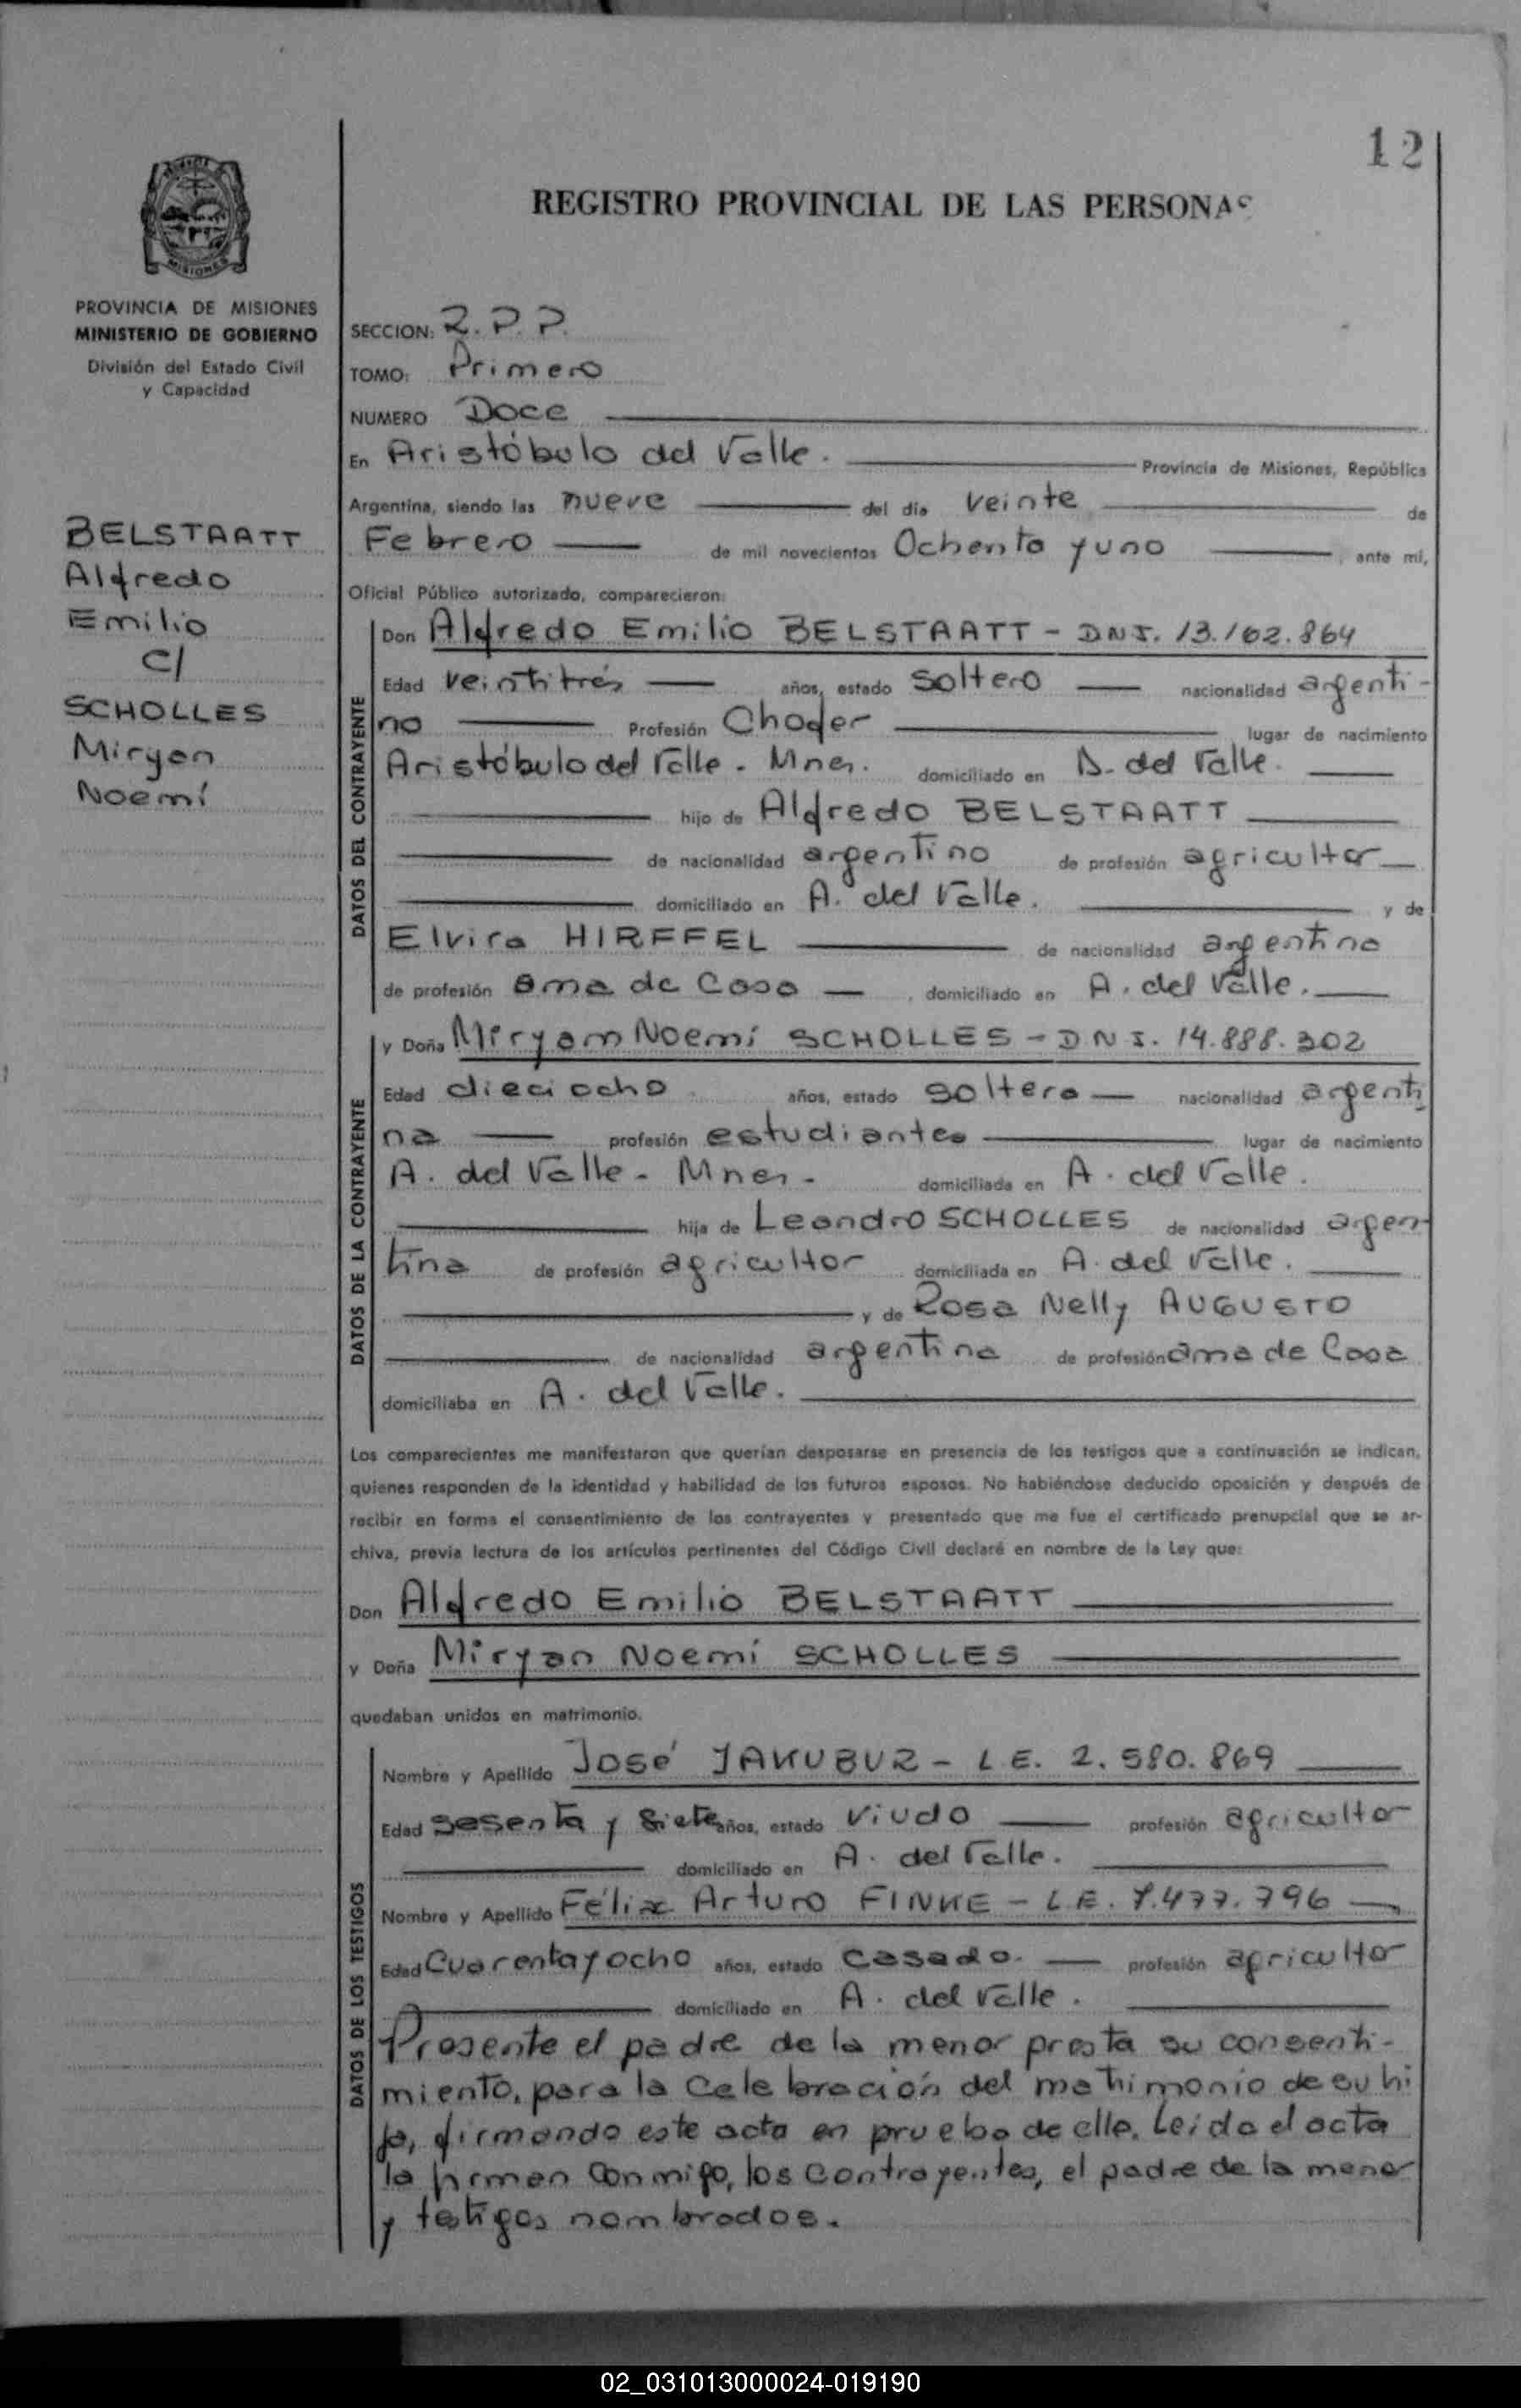 12
REGISTRO PROVINCIAL DE LAS PERSONAS
MISIONES
PROVINCIA DE MISIONES
MINISTERIO DE GOBIERNO
División del Estado Civil
y Capacidad
BELSTAATT
Alfredo
Emilio
c/
SCHOLLES
Miryan
Noemí
SECCION: R.P.P.
TOMO: Primero
NUMERO Doce
En Aristóbulo del Valle. Provincia de Misiones, República
Argentina, siendo las nueve del día veinte de
Febrero de mil novecientos Ochenta y uno, ante mí,
Oficial Público autorizado, comparecieron:
DATOS DEL CONTRAYENTE
Don Alfredo Emilio BELSTAATT - DNI. 13.162.864
Edad veintitrés años, estado soltero nacionalidad argenti-
no Profesión Chofer lugar de nacimiento
Aristóbulo del Valle - Mnes. domiciliado en A. del Valle.
hijo de Alfredo BELSTAATT
de nacionalidad argentino de profesión agricultor
domiciliado en A. del Valle. y de
Elvira HIRFFEL de nacionalidad argentina
de profesión ama de Casa, domiciliado en A. del Valle.
DATOS DE LA CONTRAYENTE
y Doña Miryam Noemí SCHOLLES - DNI. 14.888.302
Edad dieciocho años, estado soltera nacionalidad argenti
na profesión estudiantes lugar de nacimiento
A. del Valle - Mnes. domiciliada en A. del Valle.
hija de Leandro SCHOLLES de nacionalidad argen-
tina de profesión agricultor domiciliada en A. del Valle.
y de Rosa Nelly AUGUSTO
de nacionalidad argentina de profesión ama de Casa
domiciliaba en A. del Valle.
Los comparecientes me manifestaron que querían desposarse en presencia de los testigos que a continuación se indican,
quienes responden de la identidad y habilidad de los futuros esposos. No habiéndose deducido oposición y después de
recibir en forma el consentimiento de los contrayentes y presentado que me fue el certificado prenupcial que se ar-
chiva, previa lectura de los artículos pertinentes del Código Civil declaré en nombre de la Ley que:
Don Alfredo Emilio BELSTAATT
y Doña Miryan Noemí SCHOLLES
quedaban unidos en matrimonio.
DATOS DE LOS TESTIGOS
Nombre y Apellido José JAKUBUR - L.E. 2.580.869
Edad sesenta y siete años, estado viudo profesión agricultor
domiciliado en A. del Valle.
Nombre y Apellido Félix Arturo FINKE - L.E. 7.477.796
Edad Cuarenta y ocho años, estado casado. profesión agricultor
domiciliado en A. del Valle.
Presente el padre de la menor presta su consenti-
miento, para la celebración del matrimonio de su hi
ja, firmando este acta en prueba de ello. Leída el acta
la firman conmigo, los contrayentes, el padre de la menor
y testigos nombrados.
02_031013000024-019190